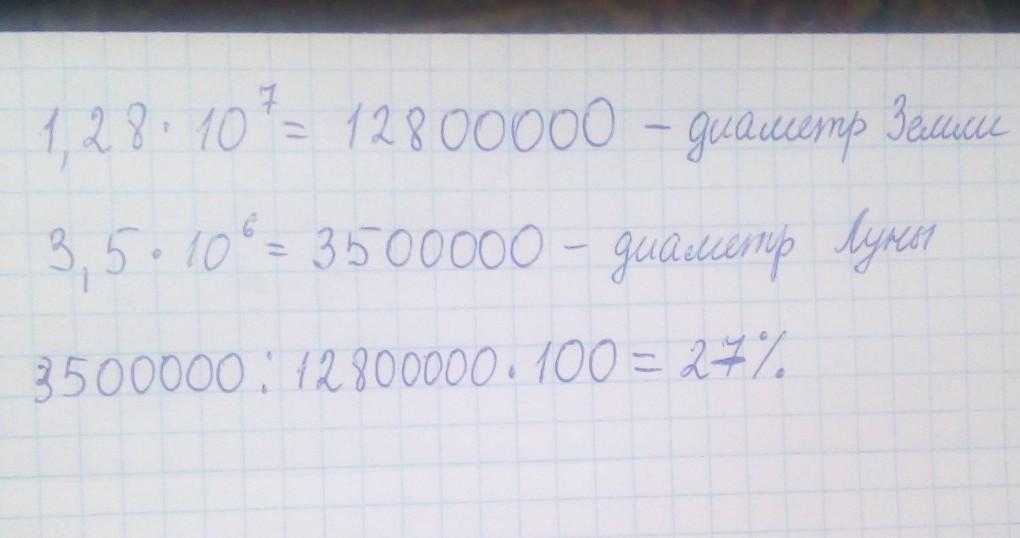 1,28 · 10⁷ = 12800000 – диаметр Земли
3,5 · 10⁶ = 3500000 – диаметр Луны
3500000 : 12800000 · 100 = 27%